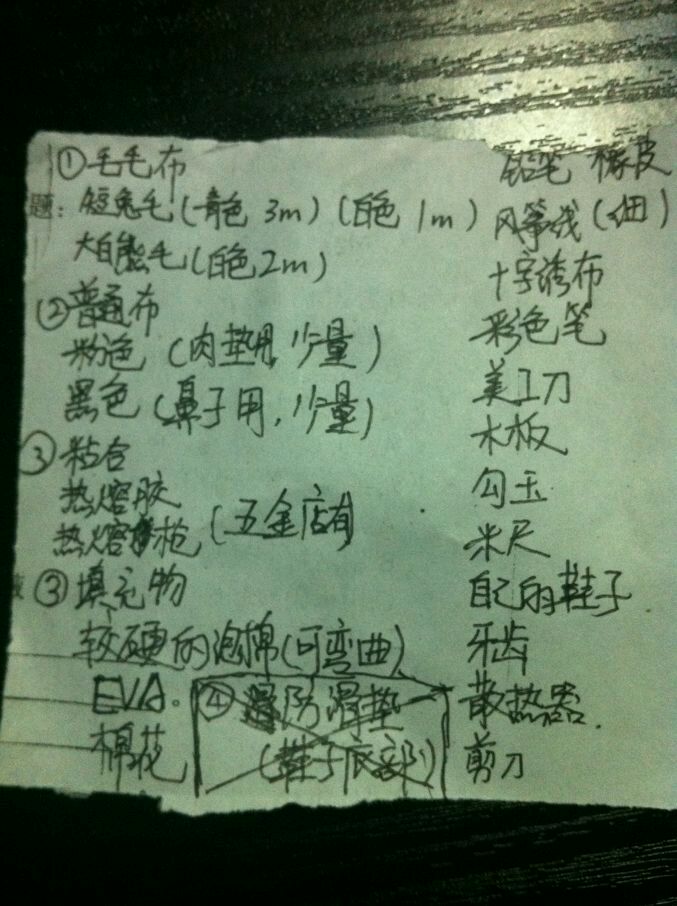 ①毛毛布
题：短兔毛(青色 3m)(白色 1m)
大白熊毛(白色2m)
②普通布
粉色 (肉垫用,少量)
黑色 (鼻子用,少量)
③粘合
热熔胶
热熔枪 (五金店有)
③填充物
较硬的泡棉(可弯曲)
EVA.
棉花
④防滑垫
(鞋子底部)
铅笔 橡皮
风筝线(细)
十字绣布
彩色笔
美工刀
木板
勾玉
米尺
自己的鞋子
牙齿
散热器.
剪刀